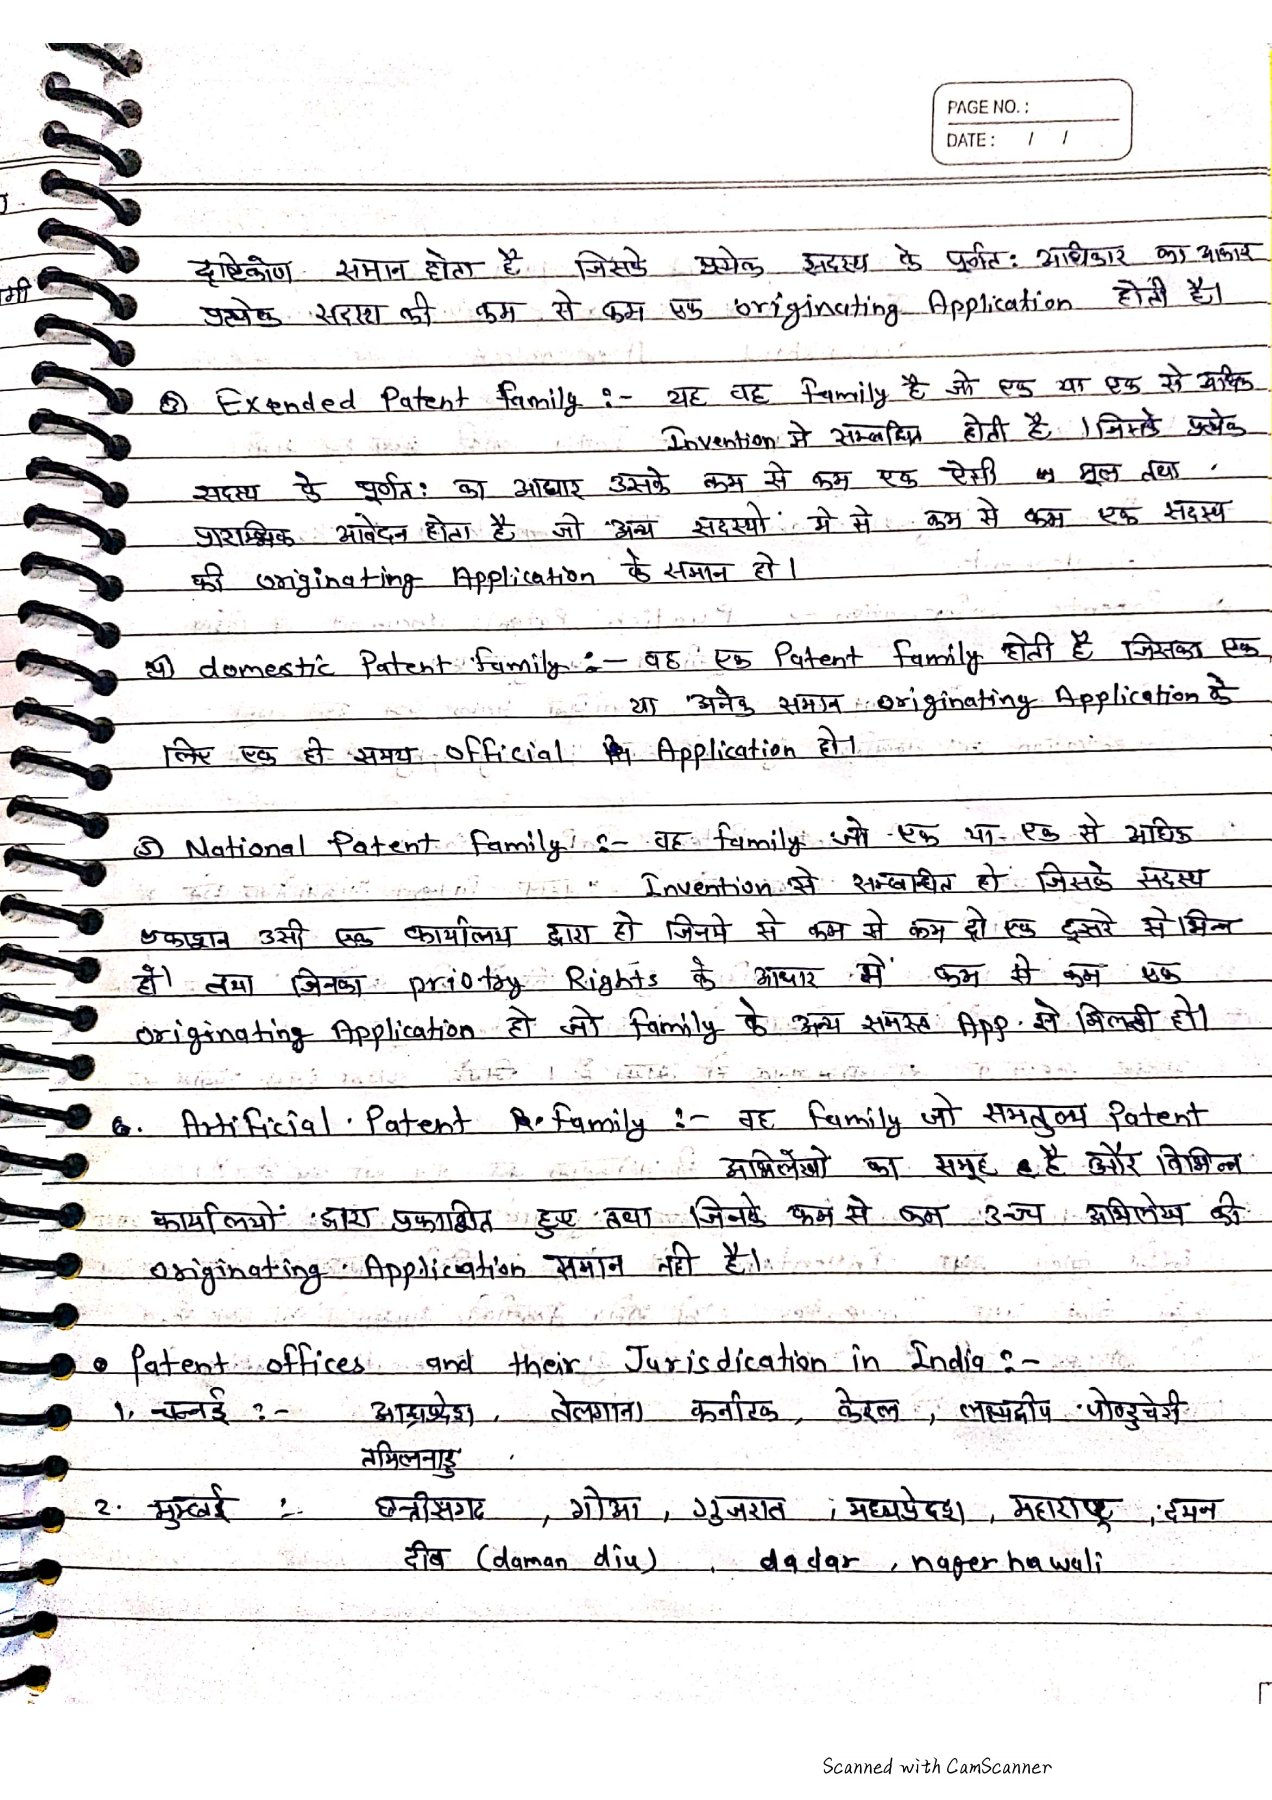 PAGE NO. :
DATE : / /
दृष्टिकोण समान होता है जिसके प्रत्येक सदस्य के पूर्णत: अधिकार का आकार
प्रत्येक सदस्य की कम से कम एक originating Application होती है।
③ Exended Patent family :- यह वह family है जो एक या एक से अधिक
Invention से सम्बन्धित होती है । जिसके प्रत्येक
सदस्य के पूर्णत: का आधार उसके कम से कम एक ऐसी मूल तथा
प्रारम्भिक आवेदन होता है जो अन्य सदस्यो मे से कम से कम एक सदस्य
की originating Application के समान हो।
4) domestic Patent family :- वह एक Patent family होती है जिसका एक
या अनेक समान originating Application के
लिए एक ही समय official Application हो।
5) National Patent family :- वह family जो एक या एक से अधिक
Invention से सम्बन्धित हो जिसके सदस्य
प्रकाशन उसी एक कार्यालय द्वारा हो जिनमे से कम से कम दो एक दुसरे से भिन्न
हों। तथा जिनका priotry Rights के आधार में कम से कम एक
originating Application हो जो family के अन्य समस्त App. से मिलती हो।
6. Artificial Patent family :- वह family जो समतुल्य Patent
अभिलेखो का समूह है और विभिन्न
कार्यालयों द्वारा प्रकाशित हुए तथा जिनके कम से कम उच्च अभिलेख की
originating Application समान नही है।
• Patent offices and their Jurisdication in India :-
1. चन्नई :- आंध्रप्रदेश, तेलगाना कर्नाटक, केरल, लक्ष्यदीप पोण्डुचेरी
तमिलनाडु
2. मुम्बई :- छत्तीसगढ़, गोआ, गुजरात, मध्यप्रेदश, महाराष्ट्र, दमन
दीव (daman diu), dadar, nager hawali
Scanned with CamScanner